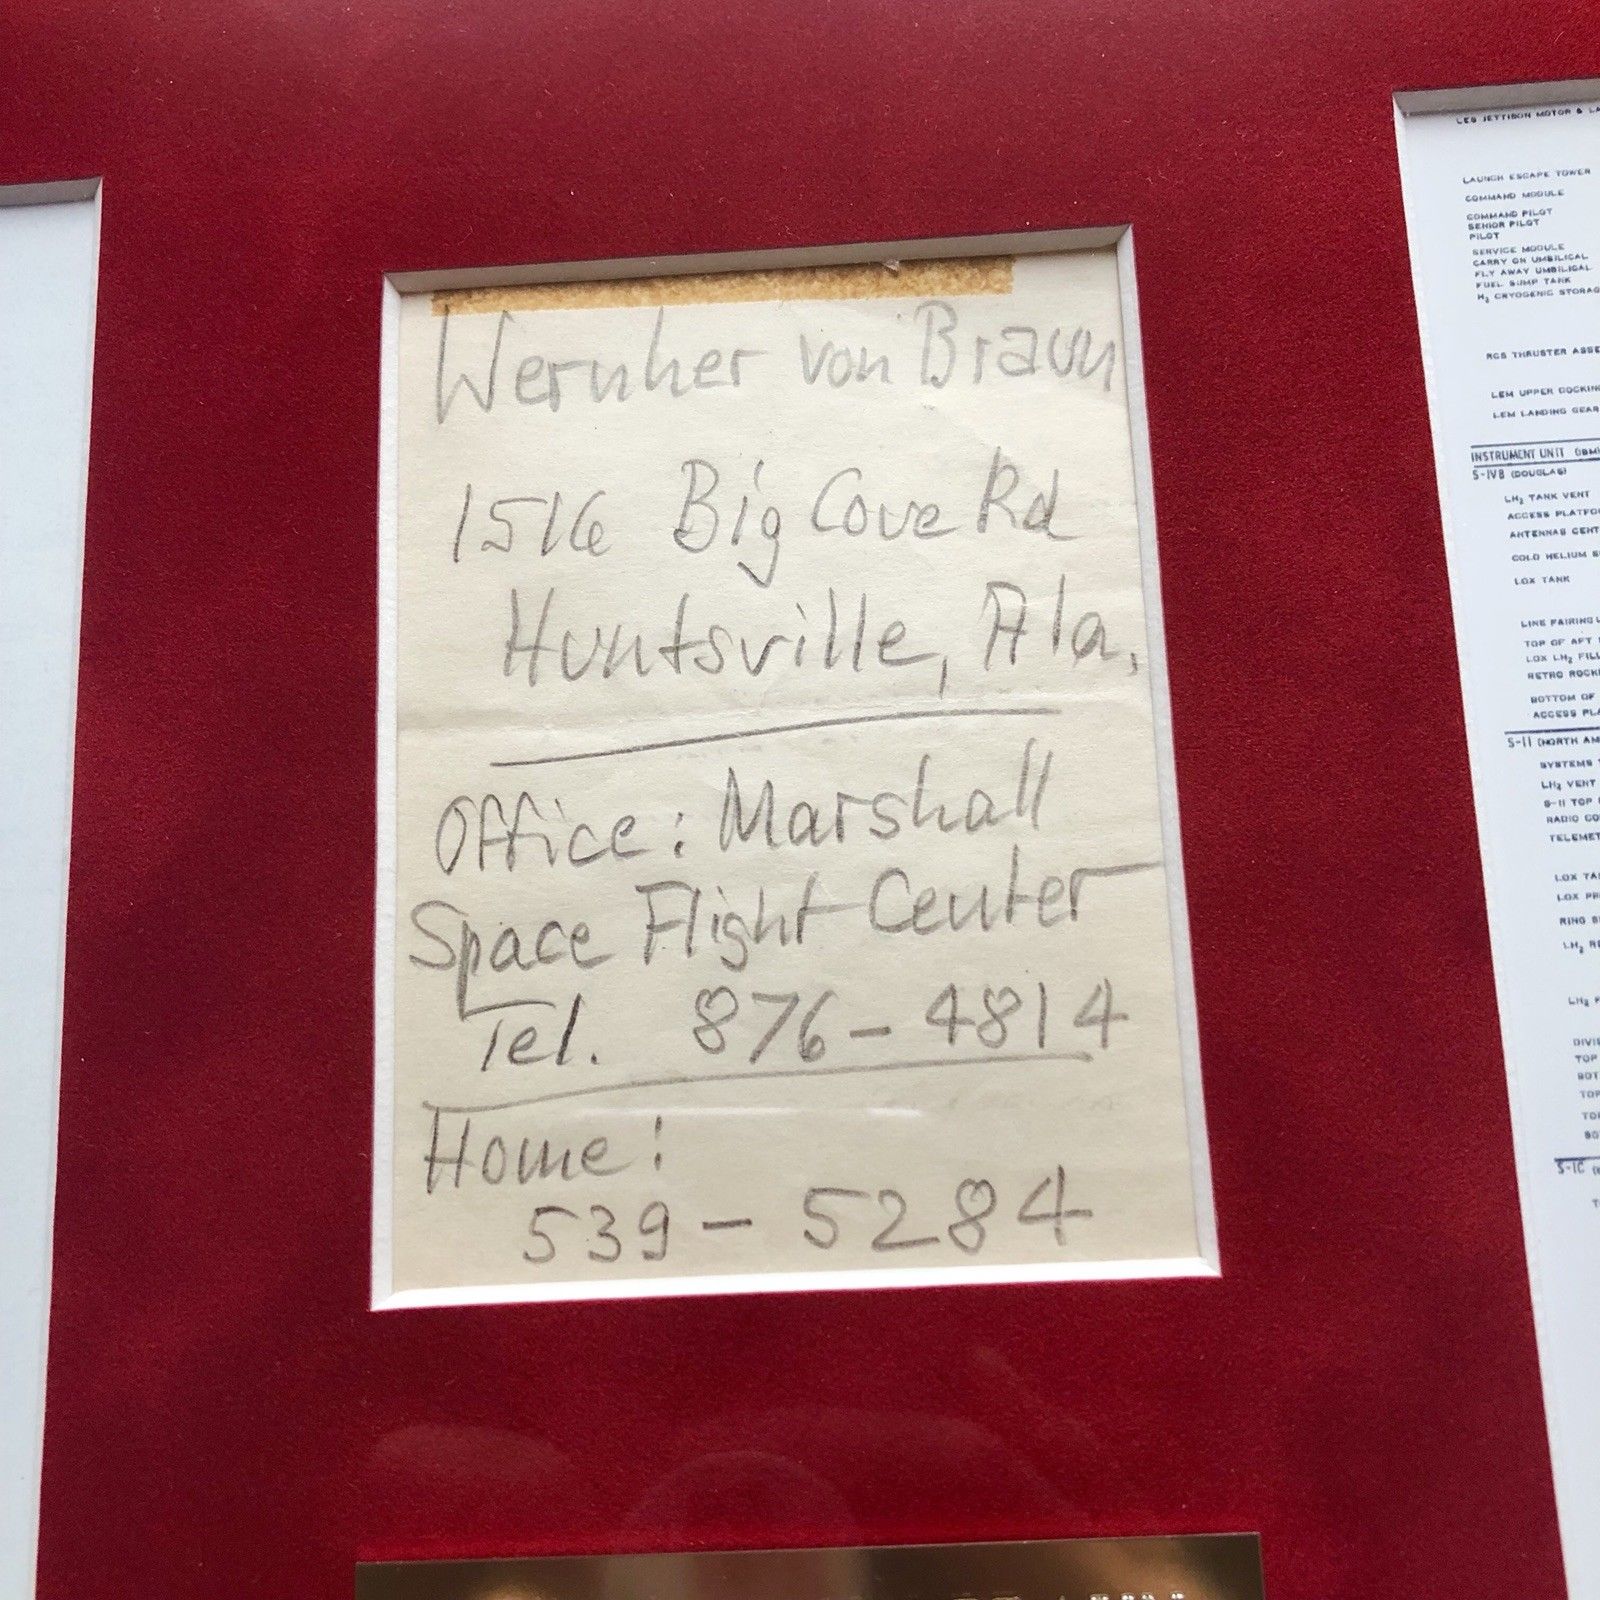 Wernher von Braun
1516 Big Cove Rd
Huntsville, Ala.
Office: Marshall
Space Flight Center
Tel. 876-4814
Home:
539-5284
LES JETTISON MOTOR &
LAUNCH ESCAPE TOWER
COMMAND MODULE
COMMAND PILOT
SENIOR PILOT
PILOT
SERVICE MODULE
CARRY ON UMBILICAL
FLY AWAY UMBILICAL
FUEL SUMP TANK
H₂ CRYOGENIC
RCS THRUSTER
LEM UPPER
LEM LANDING GEAR
INSTRUMENT UNIT
S-IVB (DOUGLAS)
LH₂ TANK VENT
ACCESS
ANTENNAS
COLD HELIUM
LOX TANK
LINE FAIRING
TOP OF AFT
LOX LH₂
RETRO
BOTTOM OF
ACCESS
S-II (NORTH
SYSTEMS
LH₂ VENT
S-II TOP
RADIO
LOX
LOX
RING
LH₂
LH₂
TOP
S-IC